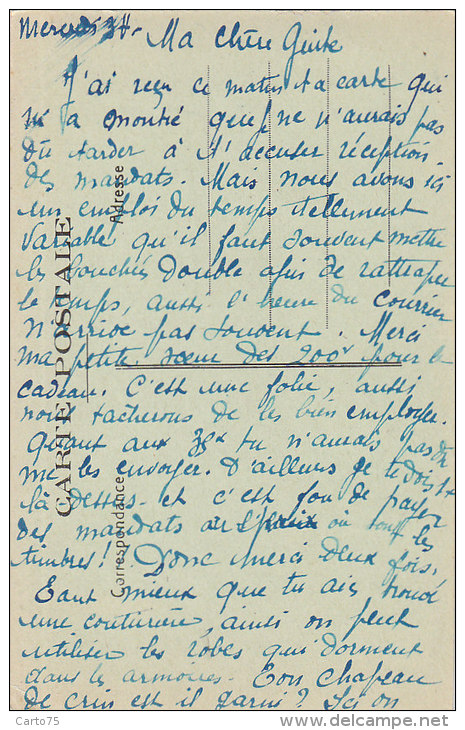 Mercredi 31.
Ma chère Guite
J'ai reçu ce matin ta carte qui
m'a montré que je n'aurais pas
du tarder à t'accuser réception
des mandats. Mais nous avons ici
un emploi du temps tellement
variable qu'il faut souvent mettre
les bouchées double afin de rattraper
le temps, aussi l'heure du courrier
n'arrive pas souvent. Merci
ma petite sœur des 200f pour le
cadeau. C'est une folie, aussi
nous tacherons de les bien employer.
Quant aux tu n'aurais pas du
me les envoyer. D'ailleurs je te dois
là-dessus et c'est fou de payer
des mandats au prix où sont les
timbres! Donc merci deux fois.
Tant mieux que tu aies trouvé
une couturière, ainsi on peut
utiliser les robes qui dorment
dans les armoires. Ton chapeau
de crin est il garni? Ici on
CARTE POSTALE
Correspondance
Adresse
Carto75